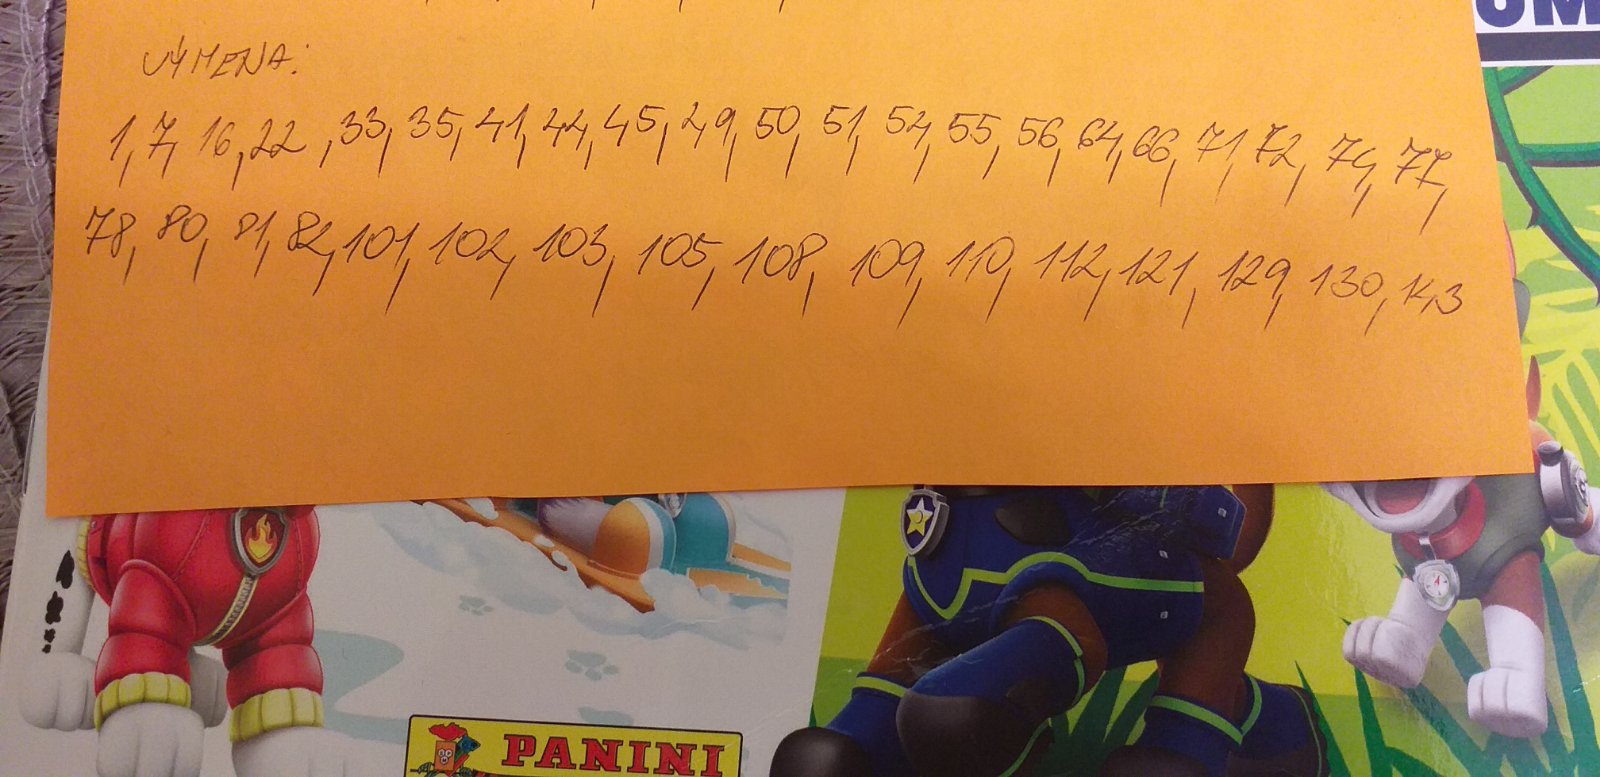 UM
VÝMENA:
1, 7, 16, 22, 33, 35, 41, 44, 45, 49, 50, 51, 52, 55, 56, 64, 66, 71, 72, 74, 77,
78, 80, 81, 82, 101, 102, 103, 105, 108, 109, 110, 112, 121, 129, 130, 143
PANINI